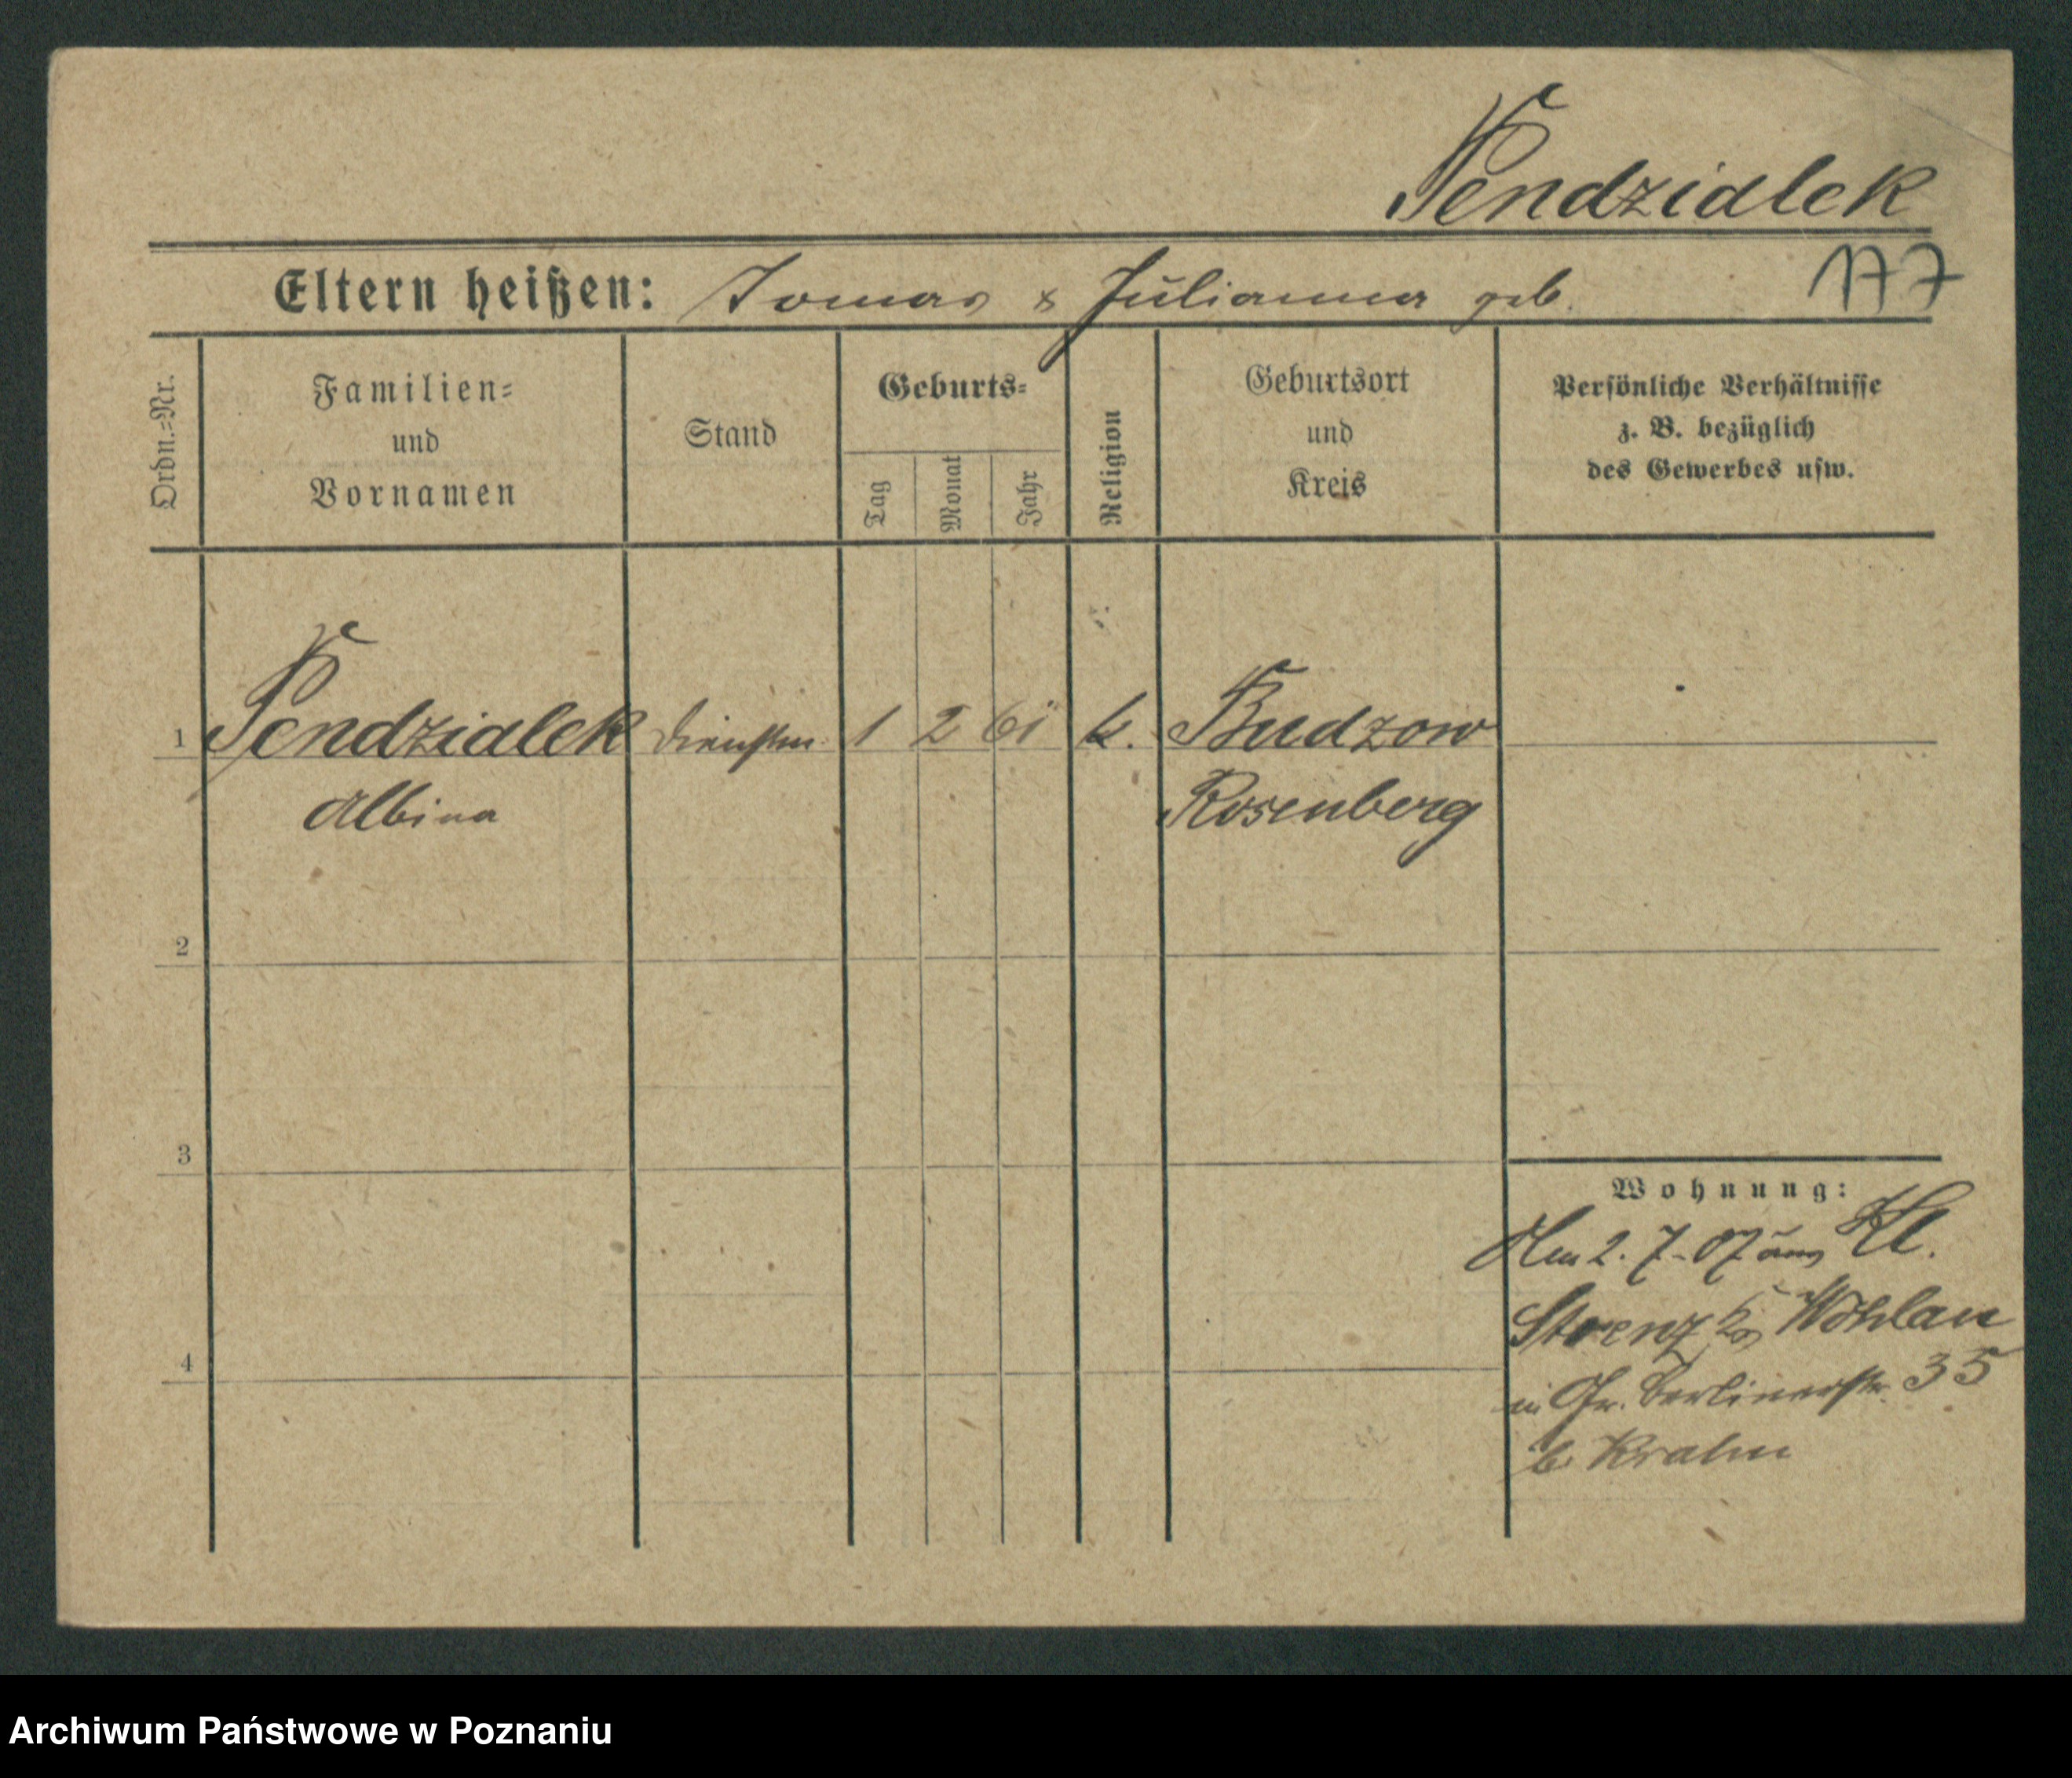 Pendzialek
177
Eltern heißen: Tomas & Julianna geb.
Ordn.=Nr.
Familien=
und
Vornamen
Stand
Geburts=
Tag
Monat
Jahr
Religion
Geburtsort
und
Kreis
Persönliche Verhältnisse
z. B. bezüglich
des Gewerbes usw.
1 Pendzialek 1 2 k. Budzow
Albina Rosenberg
2
3
4
Wohnung:
Am 2. 7. 07 aus Kl.
Strenz Wohlau
in Gr. Berlinerstr. 35
b.
Archiwum Państwowe w Poznaniu